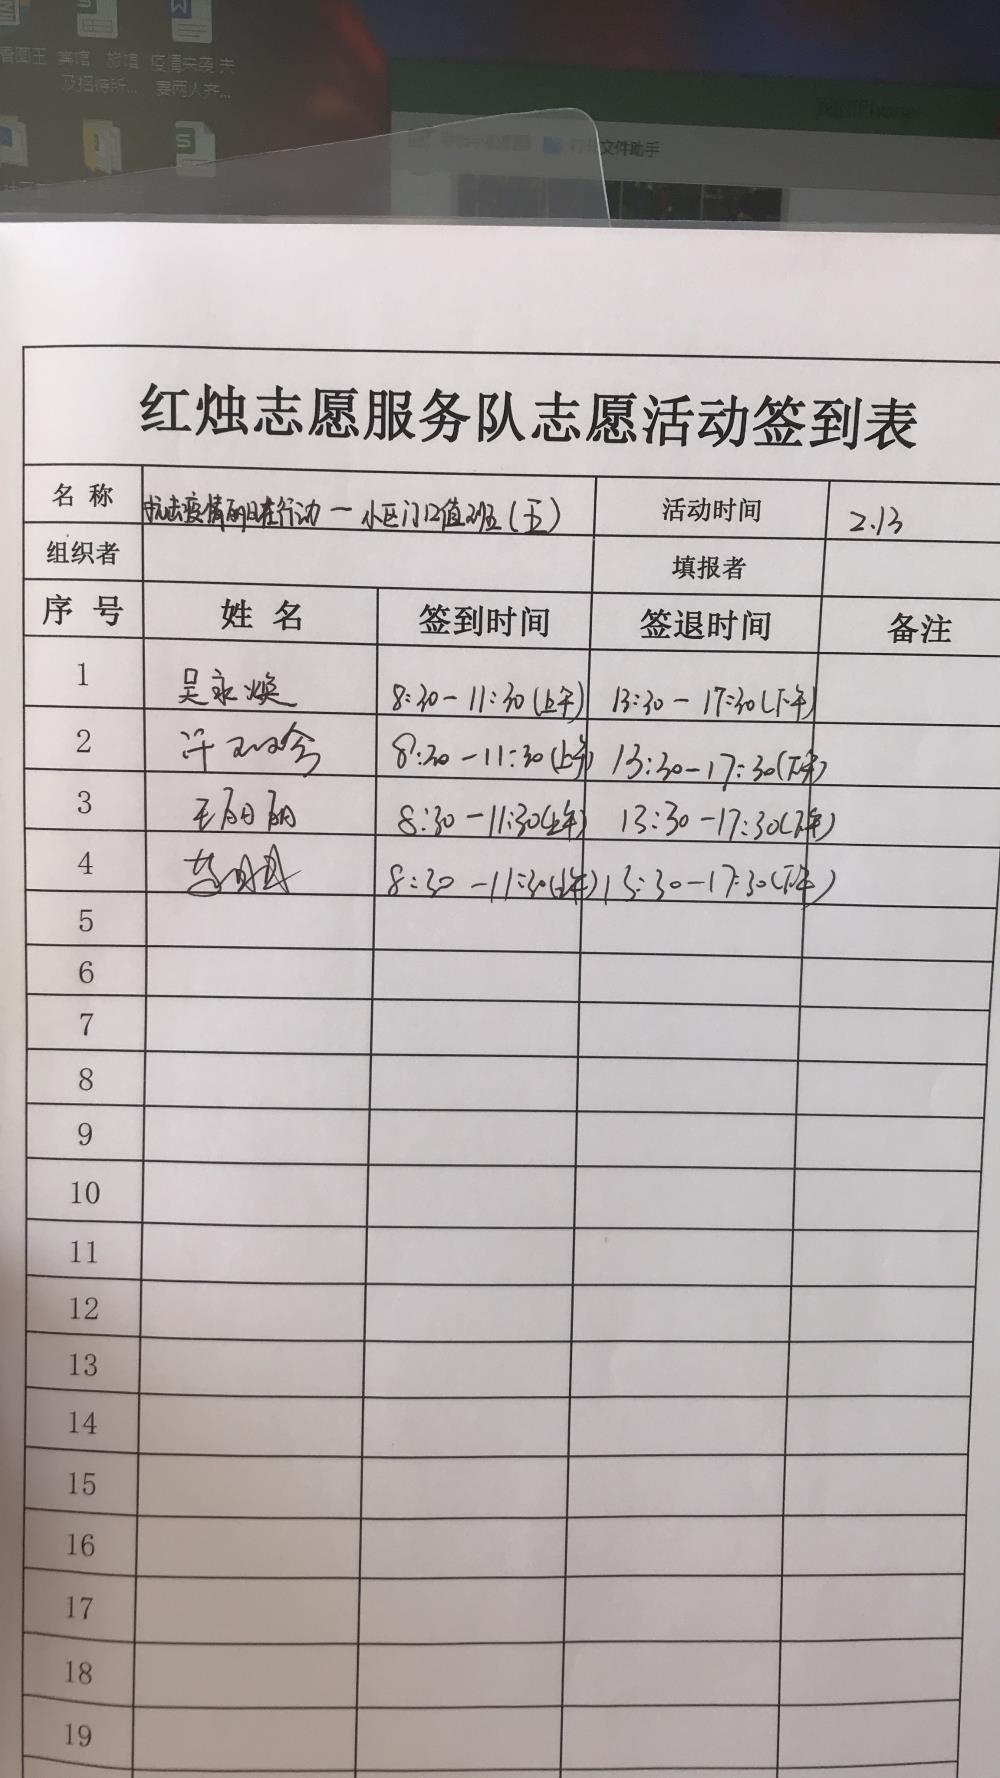 看图王
疫情来袭 夫
及招待所...
妻两人齐...
文件助手
红烛志愿服务队志愿活动签到表
名 称 抗击疫情 在行动一小区门口值班(五) 活动时间 2.13
组织者 填报者
序 号 姓 名 签到时间 签退时间 备注
1 吴永焕 8:30-11:30(上午) 13:30-17:30(下午)
2 许 8:30-11:30(上午) 13:30-17:30(下午)
3 王丽丽 8:30-11:30(上午) 13:30-17:30(下午)
4 8:30-11:30(上午) 13:30-17:30(下午)
5
6
7
8
9
10
11
12
13
14
15
16
17
18
19